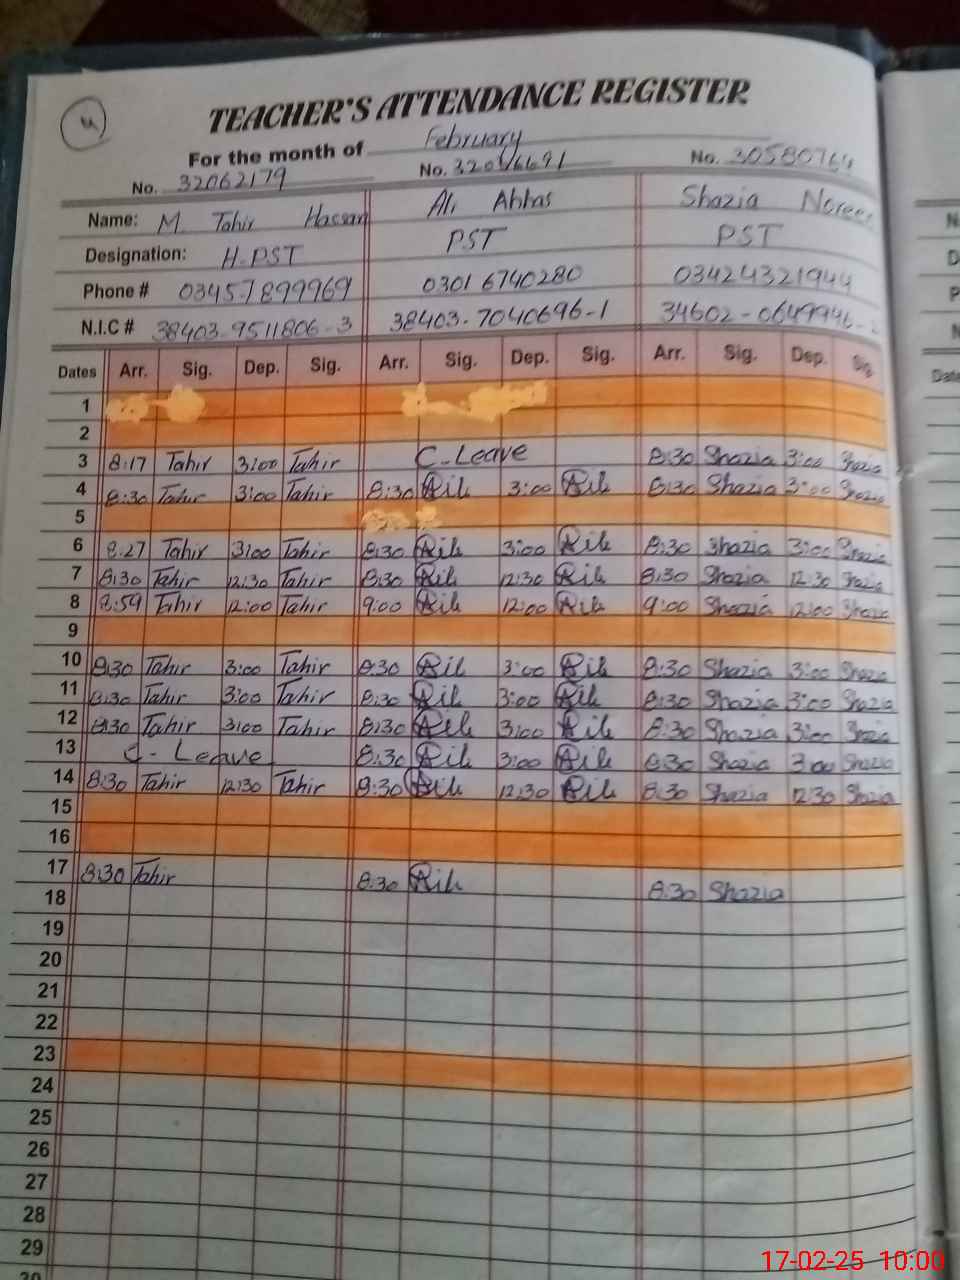 4
TEACHER'S ATTENDANCE REGISTER
For the month of February
No. 32062179 No. No. 30580764
Name: M Tahir Hassan Ali Abbas Shazia Noreen
Designation: H-PST PST PST
Phone # 03457899969 0301 6740280 03424321944
N.I.C # 38403-9511806-3 38403-7040696-1 34602-0649946-
Dates Arr. Sig. Dep. Sig. Arr. Sig. Dep. Sig. Arr. Sig. Dep. Sig.
1
2
3 8:17 Tahir 3:00 Tahir C-Leave 8:30 Shazia 3:00 Shazia
4 8:30 Tahir 3:00 Tahir 8:30 3:00 8:30 Shazia 3:00 Shazia
5
6 8:27 Tahir 3:00 Tahir 8:30 3:00 8:30 Shazia 3:00 Shazia
7 8:30 Tahir 12:30 Tahir 8:30 12:30 8:30 Shazia 12:30 Shazia
8 8:59 Tahir 12:00 Tahir 9:00 12:00 9:00 Shazia 12:00 Shazia
9
10 8:30 Tahir 3:00 Tahir 8:30 3:00 8:30 Shazia 3:00 Shazia
11 8:30 Tahir 3:00 Tahir 8:30 3:00 8:30 Shazia 3:00 Shazia
12 8:30 Tahir 3:00 Tahir 8:30 3:00 8:30 Shazia 3:00 Shazia
13 C-Leave 8:30 3:00 8:30 Shazia 3:00 Shazia
14 8:30 Tahir 12:30 Tahir 8:30 12:30 8:30 Shazia 12:30 Shazia
15
16
17 8:30 Tahir 8:30 8:30 Shazia
18
19
20
21
22
23
24
25
26
27
28
29
17-02-25 10:00